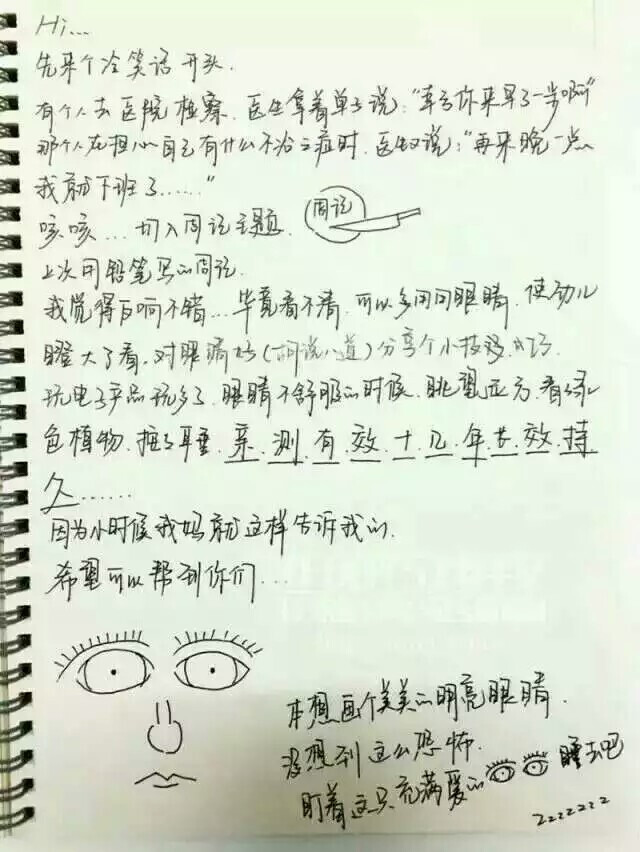 Hi...
先来个冷笑话开头.
有个人去医院检察.医生拿着单子说:"幸亏你来早了一步啊"
那个人在担心自己有什么不治之症时.医生又说:"再来晚一点
我就下班了......"
咳咳...切入周记主题.
周记
上次用铅笔写的周记.
我觉得反响不错...毕竟看不清.可以多用用眼睛.使劲儿
瞪大了看.对眼睛好(胡说八道)分享个小技巧
玩电子产品玩多了.眼睛不舒服的时候.眺望远方.看看绿
色植物.捏了耳垂.亲.测.有.效.十.几.年.长.效.持.
久......
因为小时候我妈就这样告诉我的.
希望可以帮到你们...
本想画个美美的明亮眼睛.
没想到这么恐怖.
盯着这只充满爱的 睡去吧
zzzzzzz